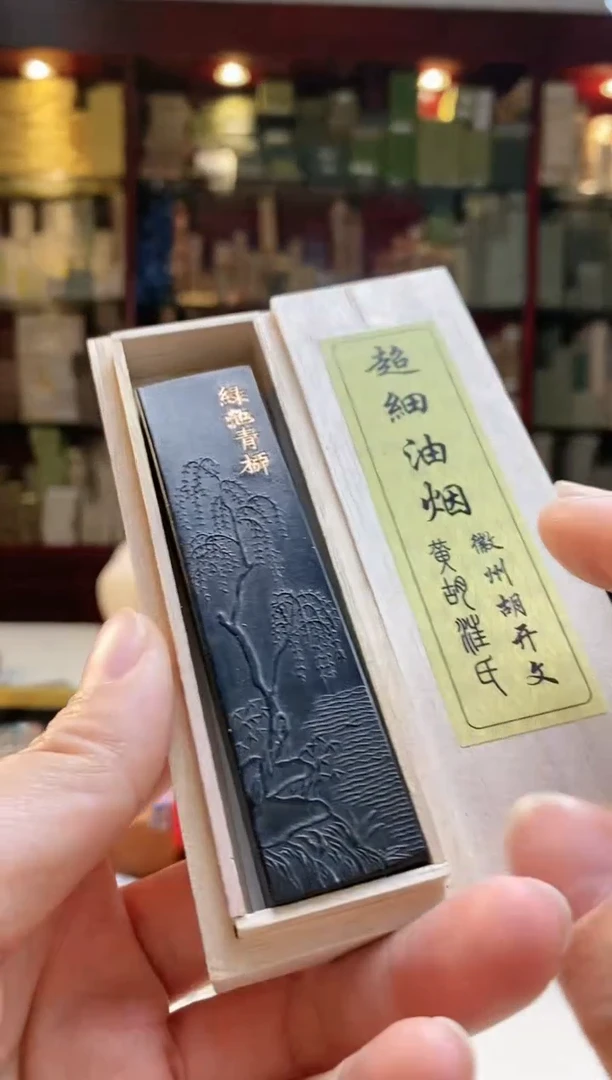 綠池青柳
超細油烟
徽州胡开文
黄胡氏